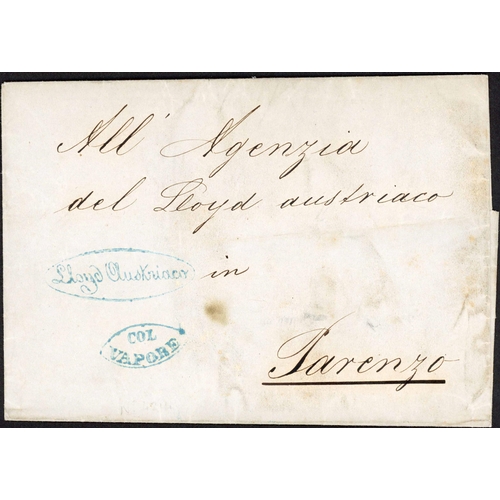 All' Agenzia
del Lloyd austriaco
Lloyd Austriaco
in
COL
VAPORE
Parenzo